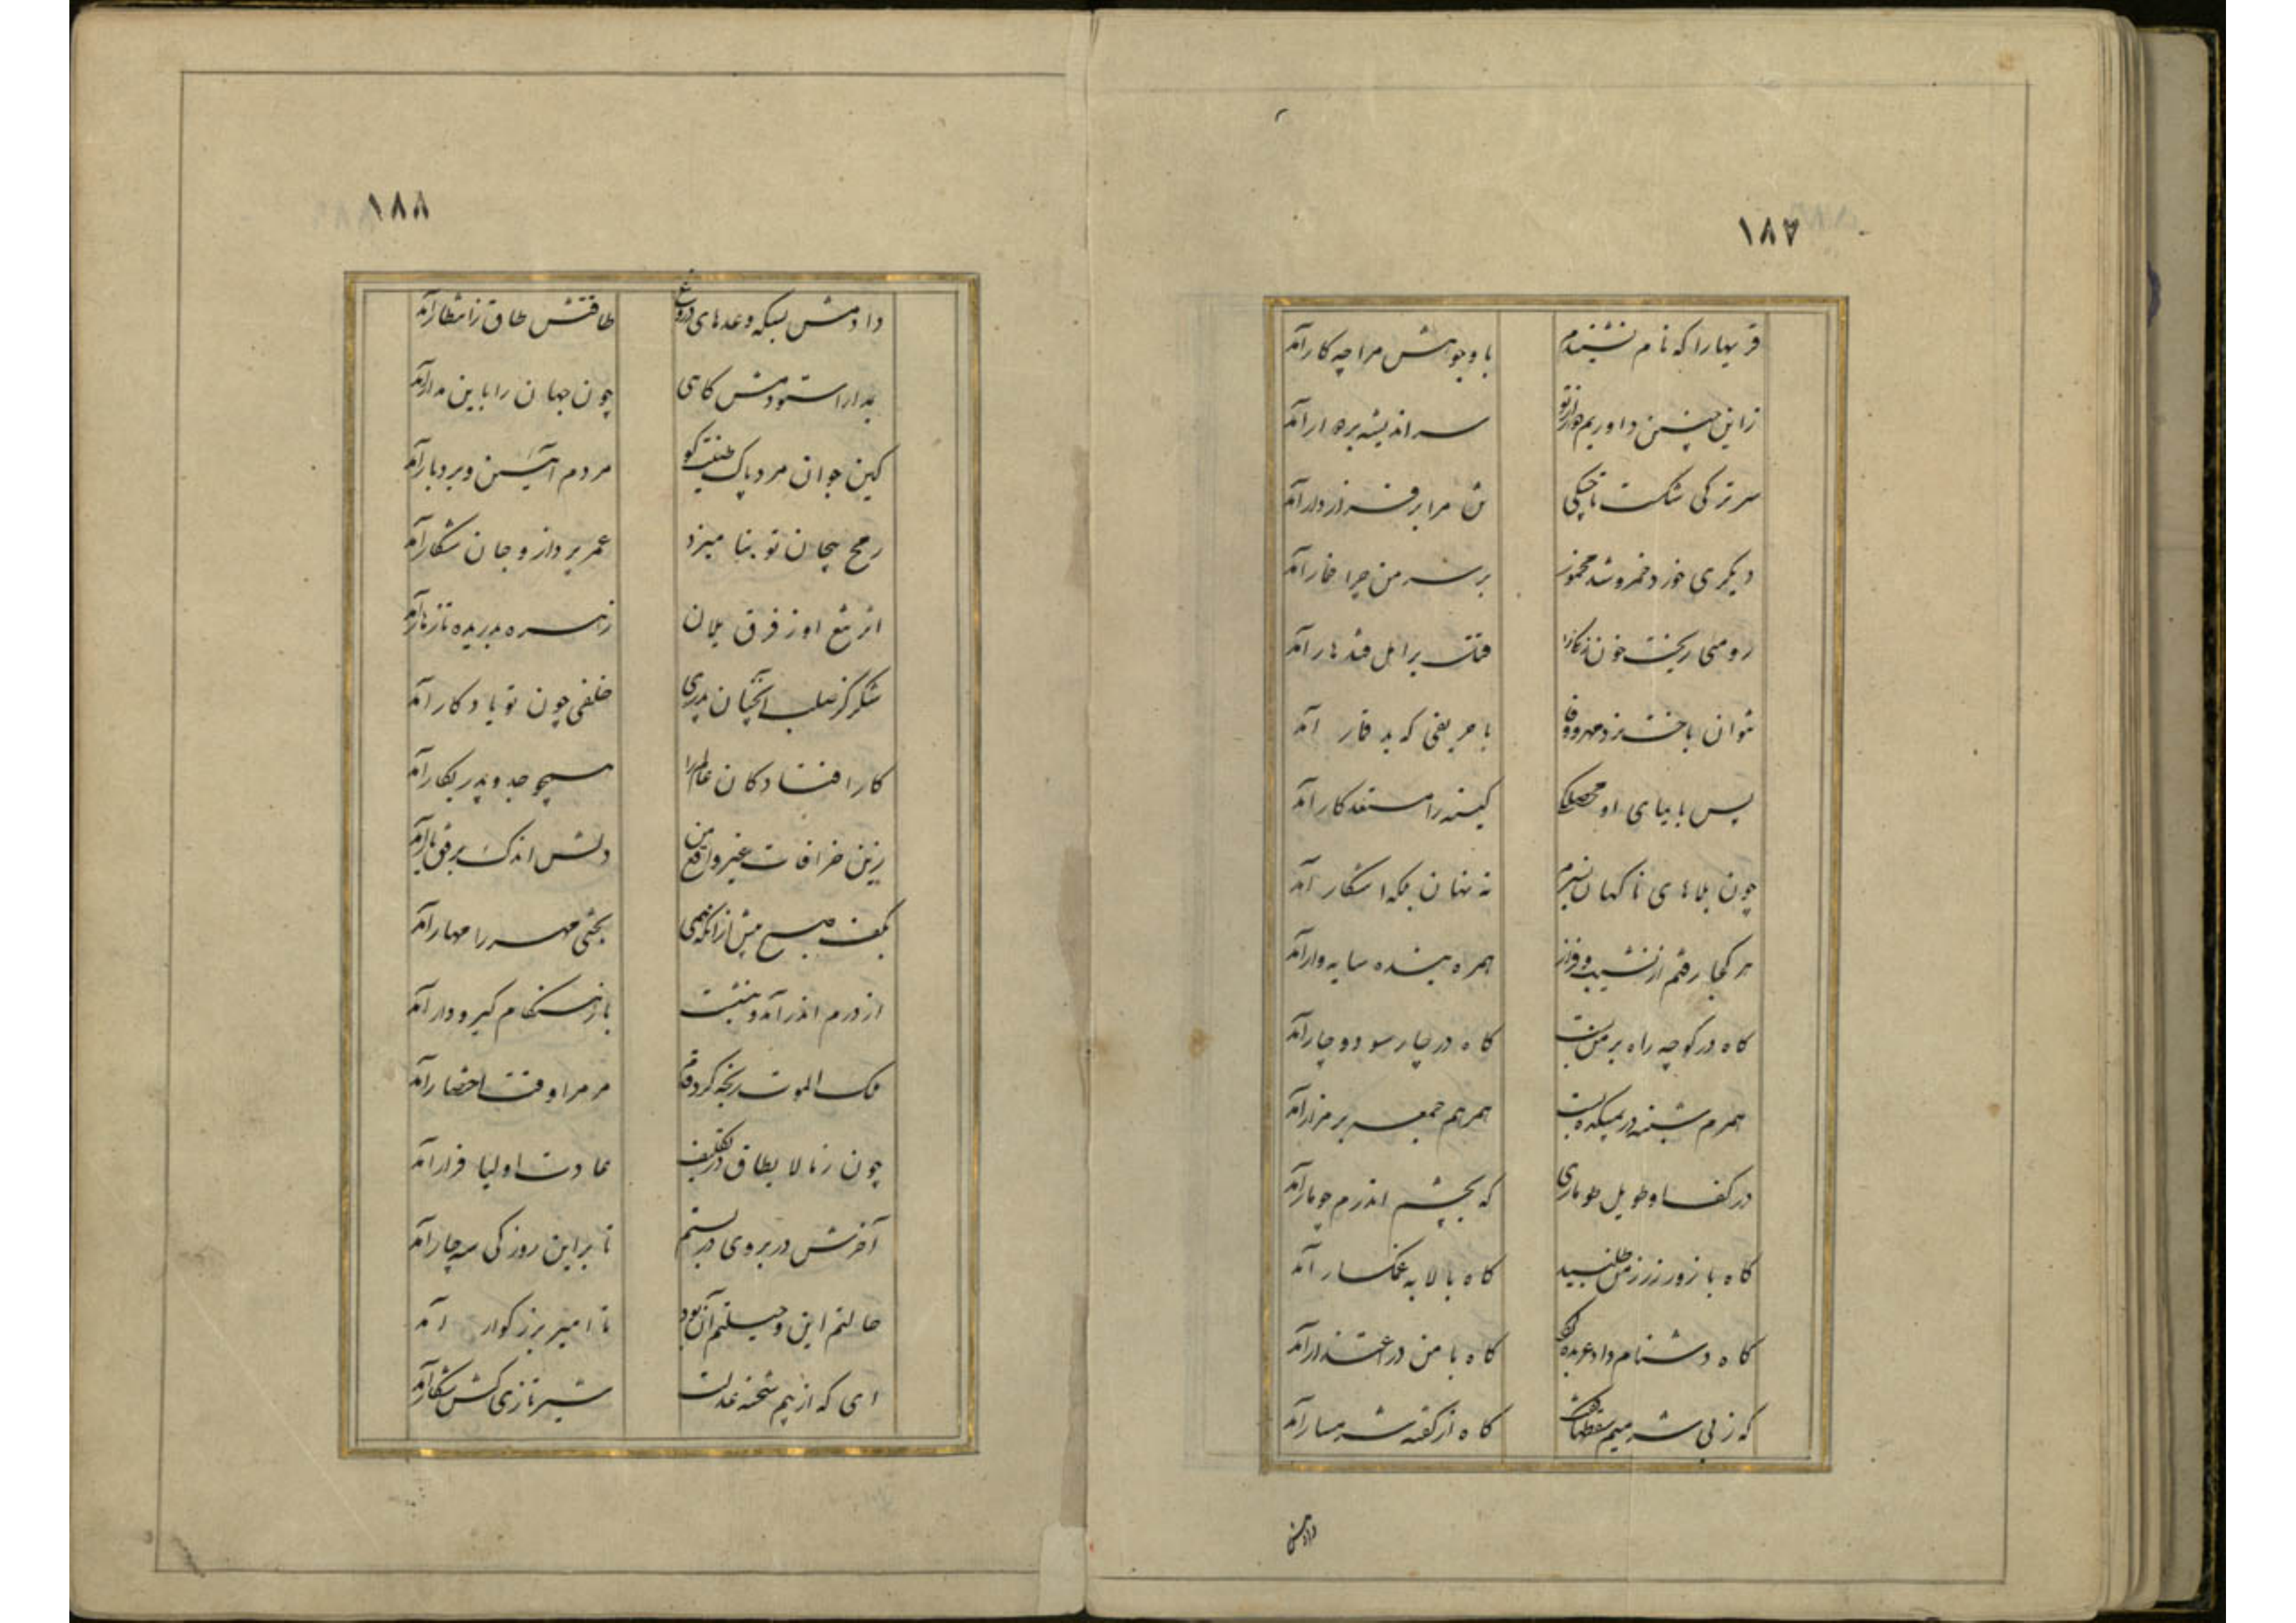 ۱۸۷
قریهٔا را که نام نشنیدم با وجوهش مرا چه کار آمد
زاین چنین داوریم هزار سر اندیشه بر هزار آمد
سر ترکی شکست تاجیکی ش مرا بر فرنه ز دار آمد
دیگری خورد خمر و شد مخمور بر سر من چرا خمار آمد
رومئی ریخت خون فتنت بر اهل قندهار آمد
نتوان باخت نرد مهر و وفا با حریفی که بد قمار آمد
پس بایبای او محصلکی کینه را مستعد کار آمد
چون بلاهای ناگهان بسرم نه نهان بلکه آشکار آمد
هر کجا رفتم از نشیب و فراز همره بنده سایه وار آمد
گاه در کوچه راه بر من بست گاه در چارسو دوچار آمد
همرهم شنبه در بمیکده بست همرهم جمعه بر مزار آمد
در کف او طویل طوماری که بچشم اندرم چو مار آمد
گاه با زور زر ز من طلبید گاه با لابه غمگسار آمد
گاه دشنام داد عربده گاه با من در اعتذار آمد
که ز بی شرمیم سقطها گفت گاه از گفته شرمسار آمد
دادمش
۱۸۸
دادمش بسکه وعدهای دروغ طاقتش طاق ز انتظار آمد
بمدارا ستودمش گاهی چون جهان را باین مدار آمد
کین جوان مرد پاک طینت کو مردم آئین و بردبار آمد
رمح پیچان تو بنامیزد عمر پرداز و جان شکار آمد
اثر تیغ او ز فرق یلان زهره بدریده تا زهار آمد
شکر کز صلب آنچنان پدری خلفی چون تو یادگار آمد
کار افتادگان عالم را همچو جد و پدر بکار آمد
زین خرافات غیر واقع من دلش اندک برفق یار آمد
بکف صبح پیش از آنکه همی بختی مهر را مهار آمد
از درم اندر آمد و بنشست باز هنگام گیر و دار آمد
ملک الموت رنجه کرد قدم مر مرا وقت احتضار آمد
چون ز ما لا یطاق در تکلیف عادت اولیا فرار آمد
آخرش در بروی در بستم تا بر این روزکی سه چار آمد
حالتم این و حیلتم آن بود تا امیر بزرگوار آمد
ای که از بیم شحنهٔ عدلت شیر تازی کش شکار آمد